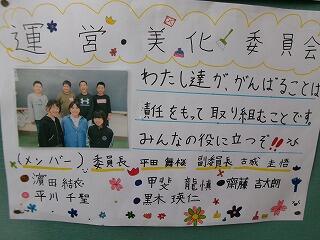 運営・美化委員会
わたし達が、がんばることは
責任をもって取り組むことです。
みんなの役に立つぞ!!
(メンバー) 委員長 平田 舞桜 副委員長 古城 圭悟
濱田 結衣 ●甲斐 龍慎 ●齋藤 吉太朗
平川 千聖 ●黒木 瑛仁